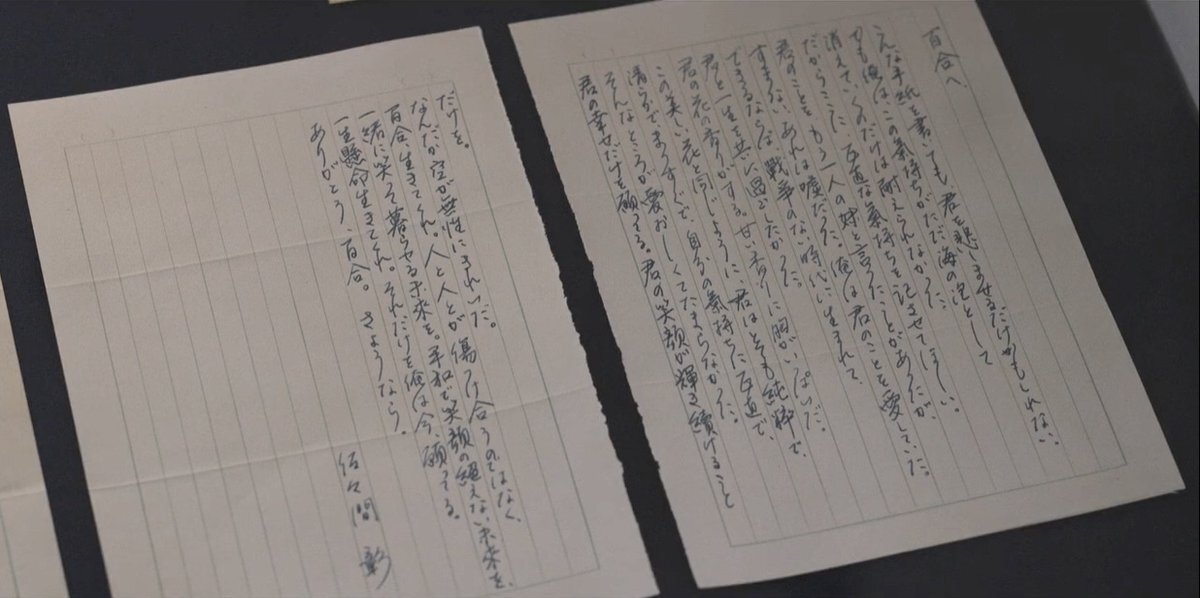 百合へ
こんな手紙を書いても、君を悲しませるだけかもしれない。
でも俺は、この氣持ちがただ海の泡として
消えていくのだけは耐えられなかった。
だからここに、正直な氣持ちを記させてほしい。
君のことをもう一人の妹と言ったことがあったが、
すまない、あれは嘘だった。俺は君のことを愛していた。
できるならば、戦争のない時代に生まれて、
君と一生を共に過ごしたかった。
君の花の香りがする。甘い香りに胸がいっぱいだ。
この美しい花と同じように、君はとても純粋で、
清らかでまっすぐで、自分の氣持ちに正直で、
そんなところが愛おしくてたまらなかった。
君の幸せだけを願ってる。君の笑顔が輝き續けること
だけを。
なんだか空が無性にきれいだ。
百合、生きてくれ。人と人とが傷つけ合うのではなく、
一緒に笑って暮らせる未来を。平和で笑顔の絶えない未来を、
一生懸命生きてくれ。それだけを俺は今、願ってる。
ありがとう、百合。さようなら。
佐々間 彰